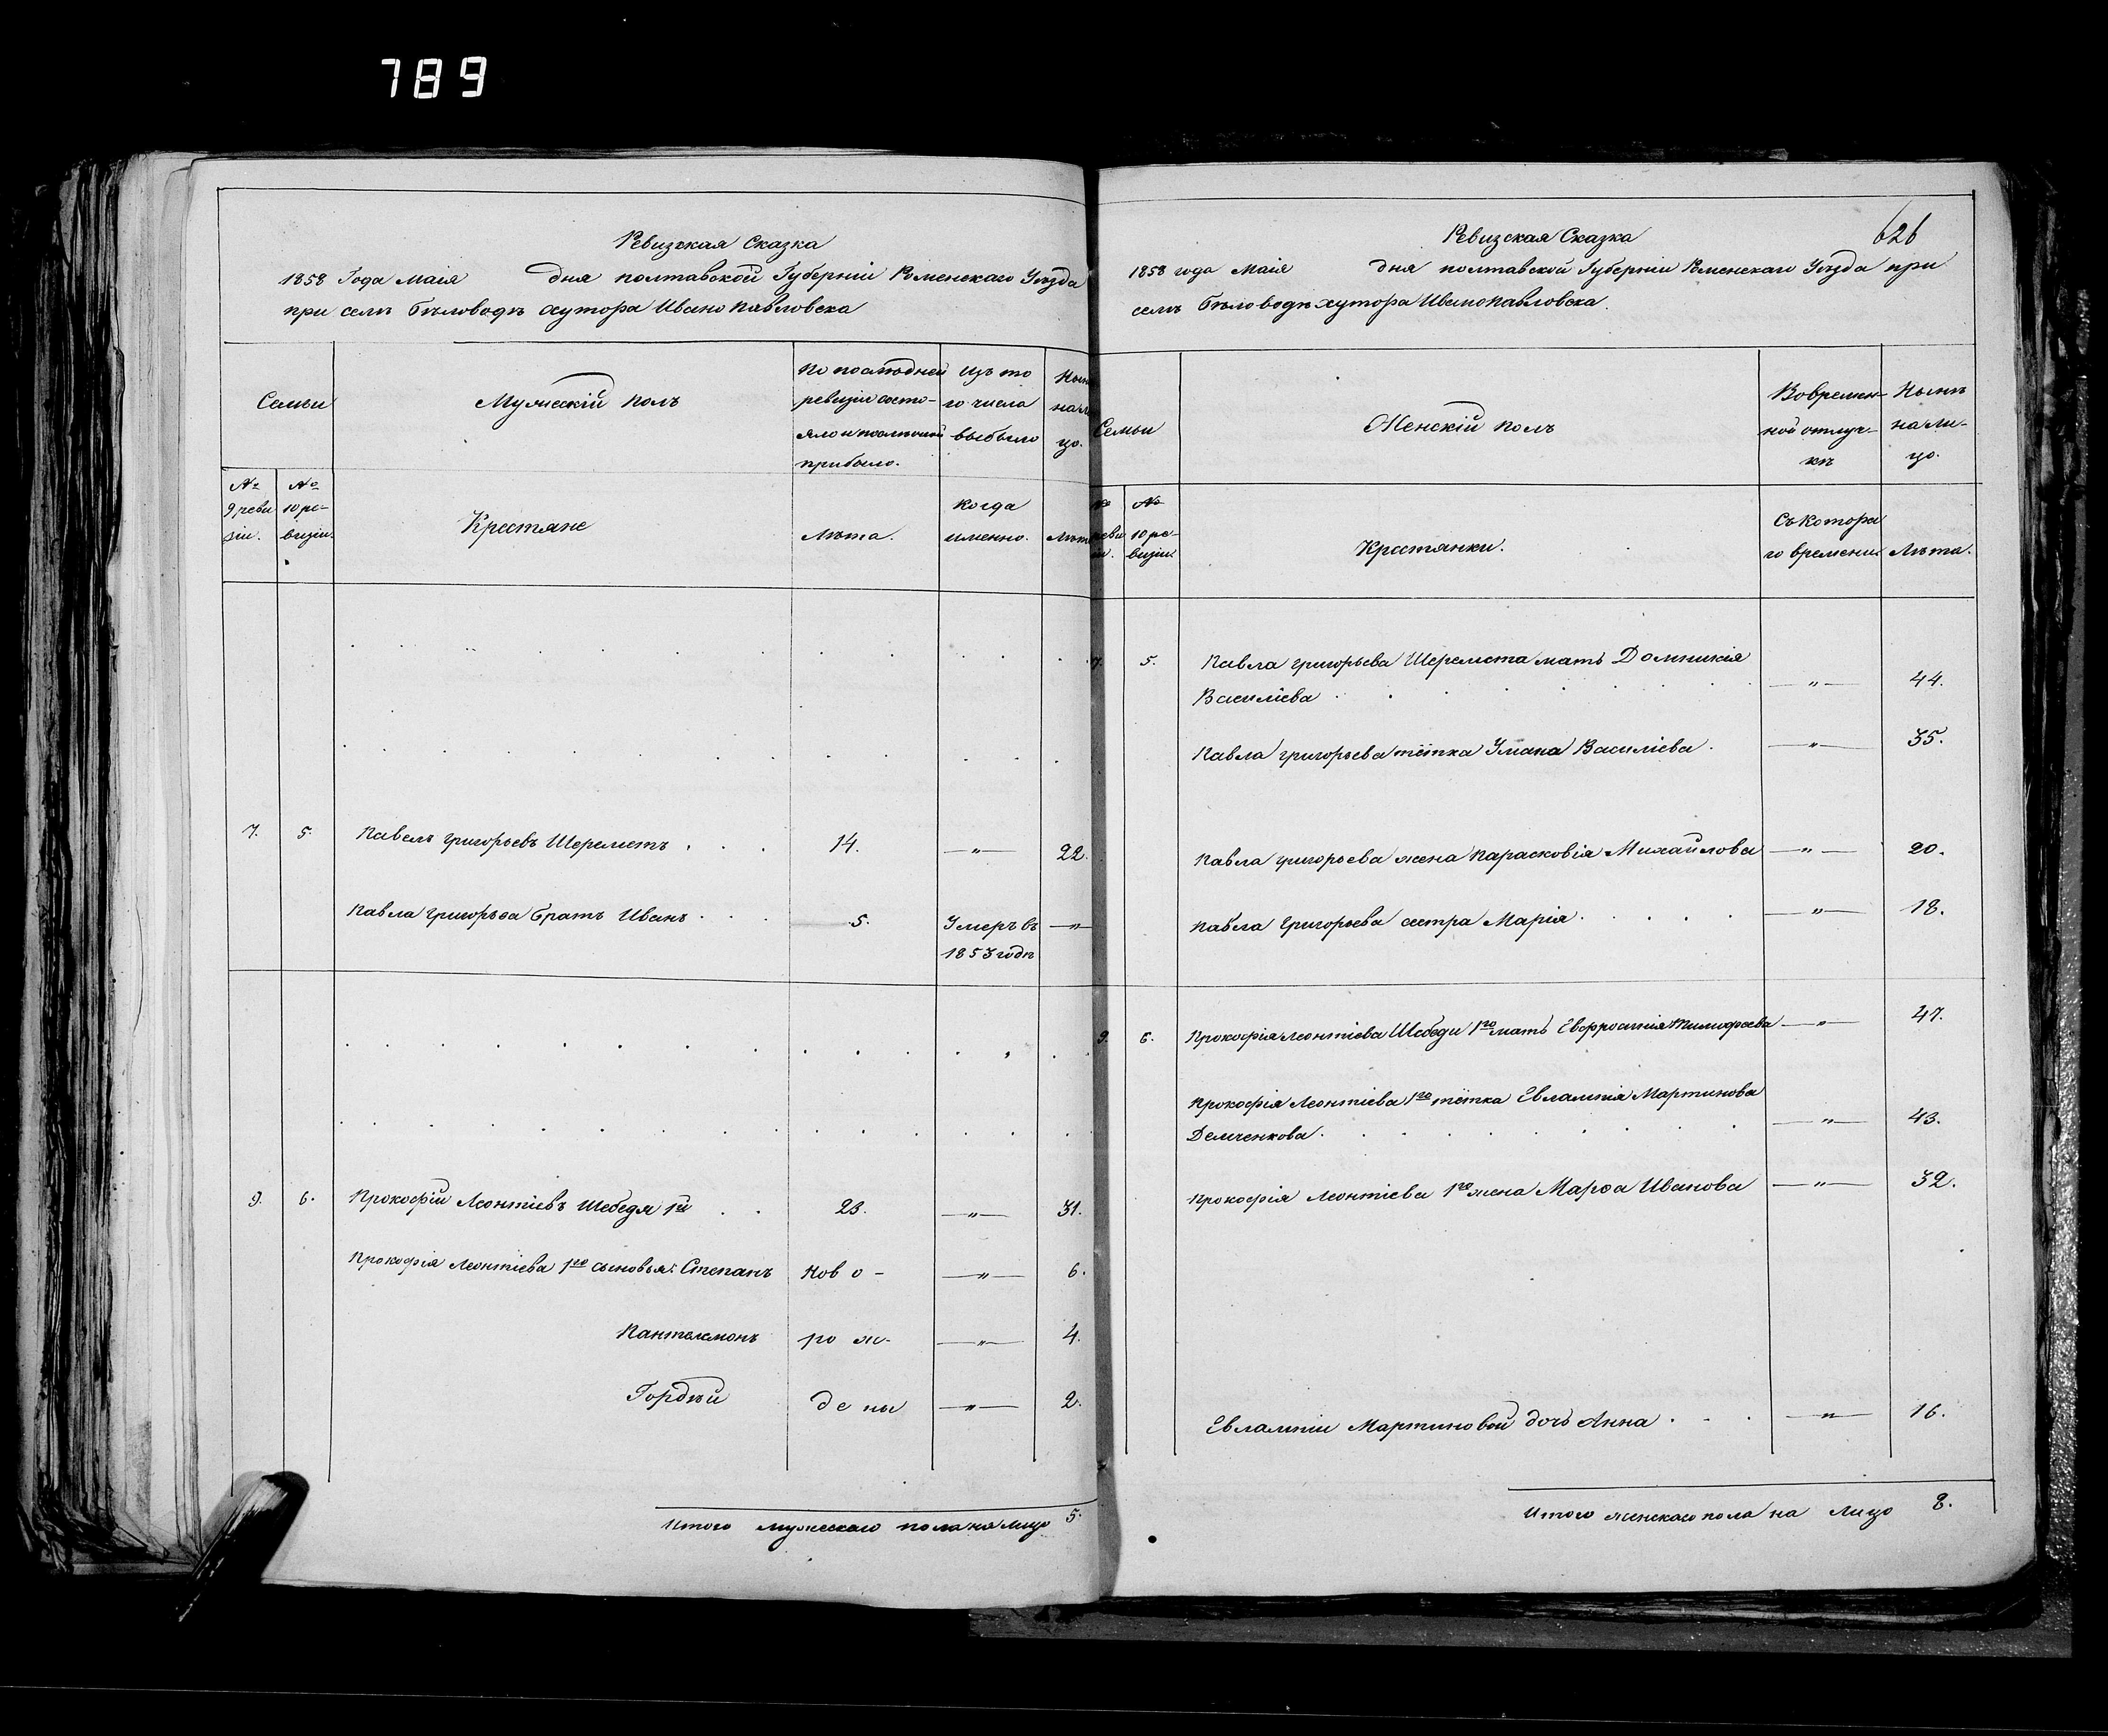 789
Ревизская Сказка
1858 Года Маія дня полтавской Губерніи Роменскаго Уѣзда
при селѣ Бѣловодѣ хутора Ивано Павловска
Семьи
Мужескій полъ
По послѣдней
ревизіи состо-
яло и послѣ оной
прибыло.
Изъ то
го числа
выбыло
Нын
на л
цо.
№
9 реви
зіи.
№
10 ре-
визіи.
Крестяне
Лѣта.
Когда
именно.
Лѣт
7. 5. Павелъ Григорьевъ Шереметъ . . . 14. —„— 22.
Павла Григорьева братъ Иванъ . . . 5. Умеръ въ —„—
1853 годѣ
9. 6. Прокофій Леонтіевъ Шебедя 1й . . 23. —„— 31.
Прокофія Леонтіева 1го сыновья: Степанъ Ново- —„— 6.
Пантелемонъ рож- —„— 4.
Гордѣй дены —„— 2.
Итого мужескаго пола на лицо 5.
626
Ревизская Сказка
1858 года Маія дня полтавской Губерніи Роменскаго Уѣзда при
селѣ Бѣловодѣ хутора Иванопавловска.
Семьи
Женскій полъ
Вовремен-
ной отлуч-
кѣ
Нынѣ
на ли-
цо.
№
реви
іи.
№
10 ре-
визіи.
Крестянки.
Съ котора
го времени
Лѣта.
7. 5. Павла григорьева Шеремета мать Домникія
Василіева . . . —„— 44.
Павла григорьева тётка Уляна Василіева . —„— 35.
Павла григорьева жена Парасковія Михайлова —„— 20.
Павла Григорьева сестра Марія . . . —„— 18.
9. 6. Прокофія Леонтіева Шебеди 1го мать Евфросинія Тимофеева —„— 47.
Прокофія Леонтіева 1го тётка Евлампія Мартинова
Демченкова . . . —„— 43.
Прокофія Леонтіева 1го жена Марфа Иванова —„— 32.
Евлампіи Мартиновой дочь Анна . . . —„— 16.
Итого женскаго пола на Лицо 8.